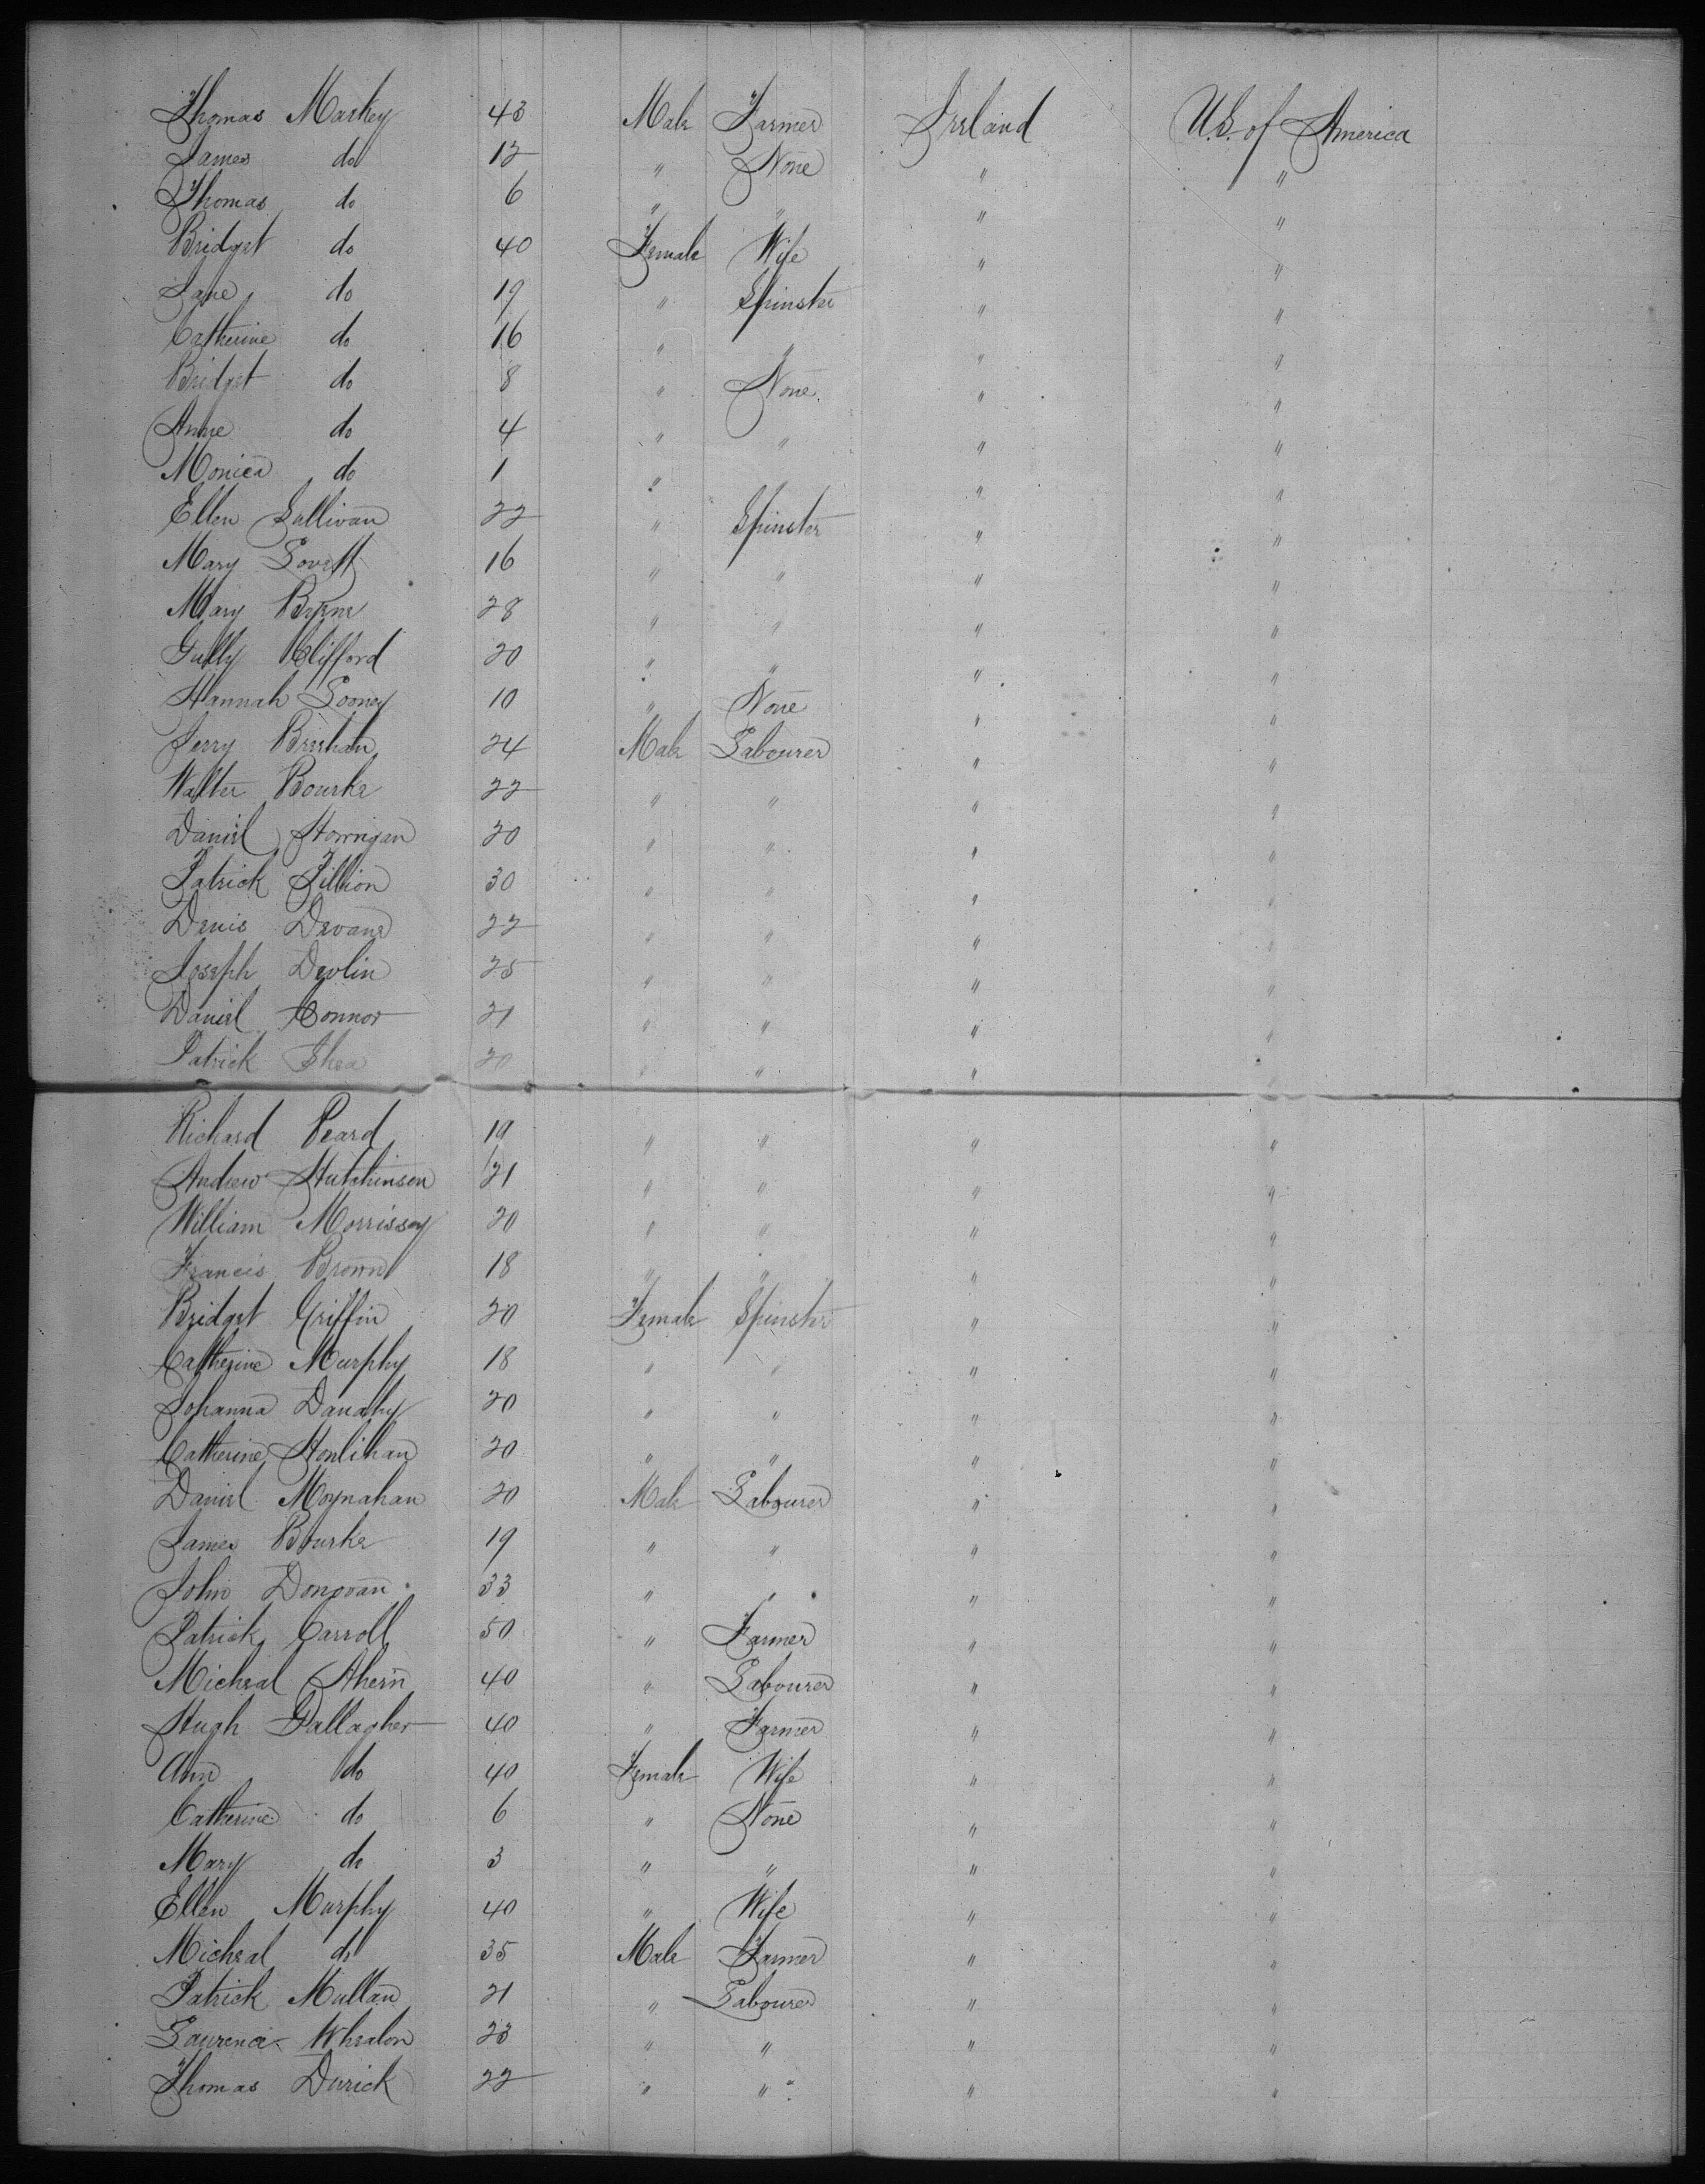 Thomas Markey 43 Male Farmer Ireland U.S. of America
James do 12 " None " "
Thomas do 6 " " " "
Bridget do 40 Female Wife " "
Jane do 19 " Spinster " "
Catherine do 16 " " " "
Bridget do 8 " None " "
Anne do 4 " " " "
Monica do 1 " " "
Ellen Sullivan 22 " Spinster " "
Mary Lovett 16 " " " "
Mary Byrne 28 " " " "
Clifford 20 " " " "
Hannah Looney 10 " None " "
Jerry 24 Male Labourer " "
Walter Bourke 22 " " " "
Daniel Horrigan 20 " " " "
Patrick 30 " " " "
Denis Devane 22 " " " "
Joseph Devlin 25 " " " "
Daniel Connor 21 " " " "
Patrick Shea 20 " " " "
Richard Peard 19 " " " "
Andrew Hutchinson 21 " " " "
William Morrissey 20 " " " "
Francis Brown 18 " " " "
Bridget Griffin 20 Female Spinster " "
Catherine Murphy 18 " " " "
Johanna Danahy 20 " " " "
Catherine Honlihan 20 " " " "
Daniel Moynahan 20 Male Labourer " "
James Bourke 19 " " " "
John Donovan 33 " " " "
Patrick Carroll 50 " Farmer " "
Micheal Ahern 40 " Labourer " "
Hugh Gallagher 40 " Farmer " "
Ann do 40 Female Wife " "
Catherine do 6 " None " "
Mary do 3 " " " "
Ellen Murphy 40 " Wife " "
Micheal do 35 Male Farmer " "
Patrick Mullan 21 " Labourer " "
Laurence Whealon 23 " " " "
Thomas Durick 22 " " " "